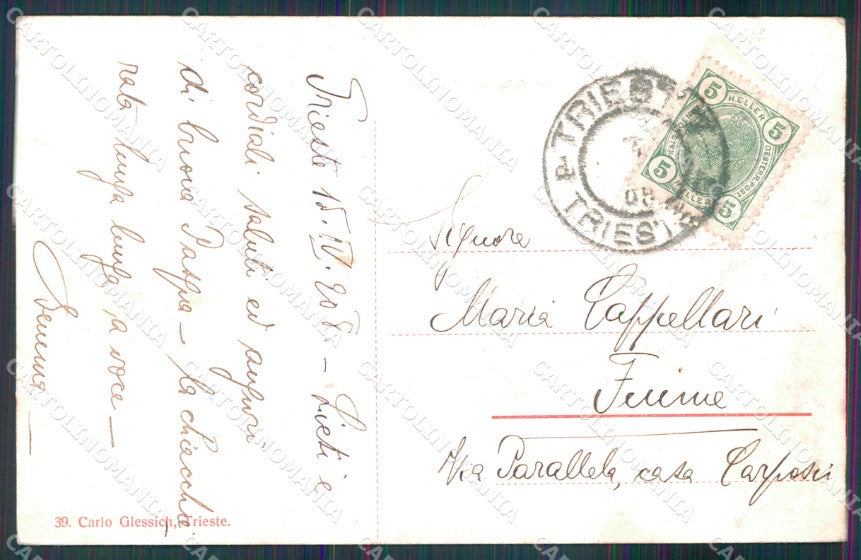 Trieste 15.IV.908. – Lieti e
cordiali saluti ed auguri
di buona Pasqua – la chiacche
rata lunga lunga a voce –
TRIESTE
TRIESTE
08
5
HELLER
5
5
HELLER
5
OESTERR. POST
Signora
Maria Cappellari
Fiume
Via Parallela, casa
39. Carlo Glessich, Trieste.
CARTOLINOMANIA